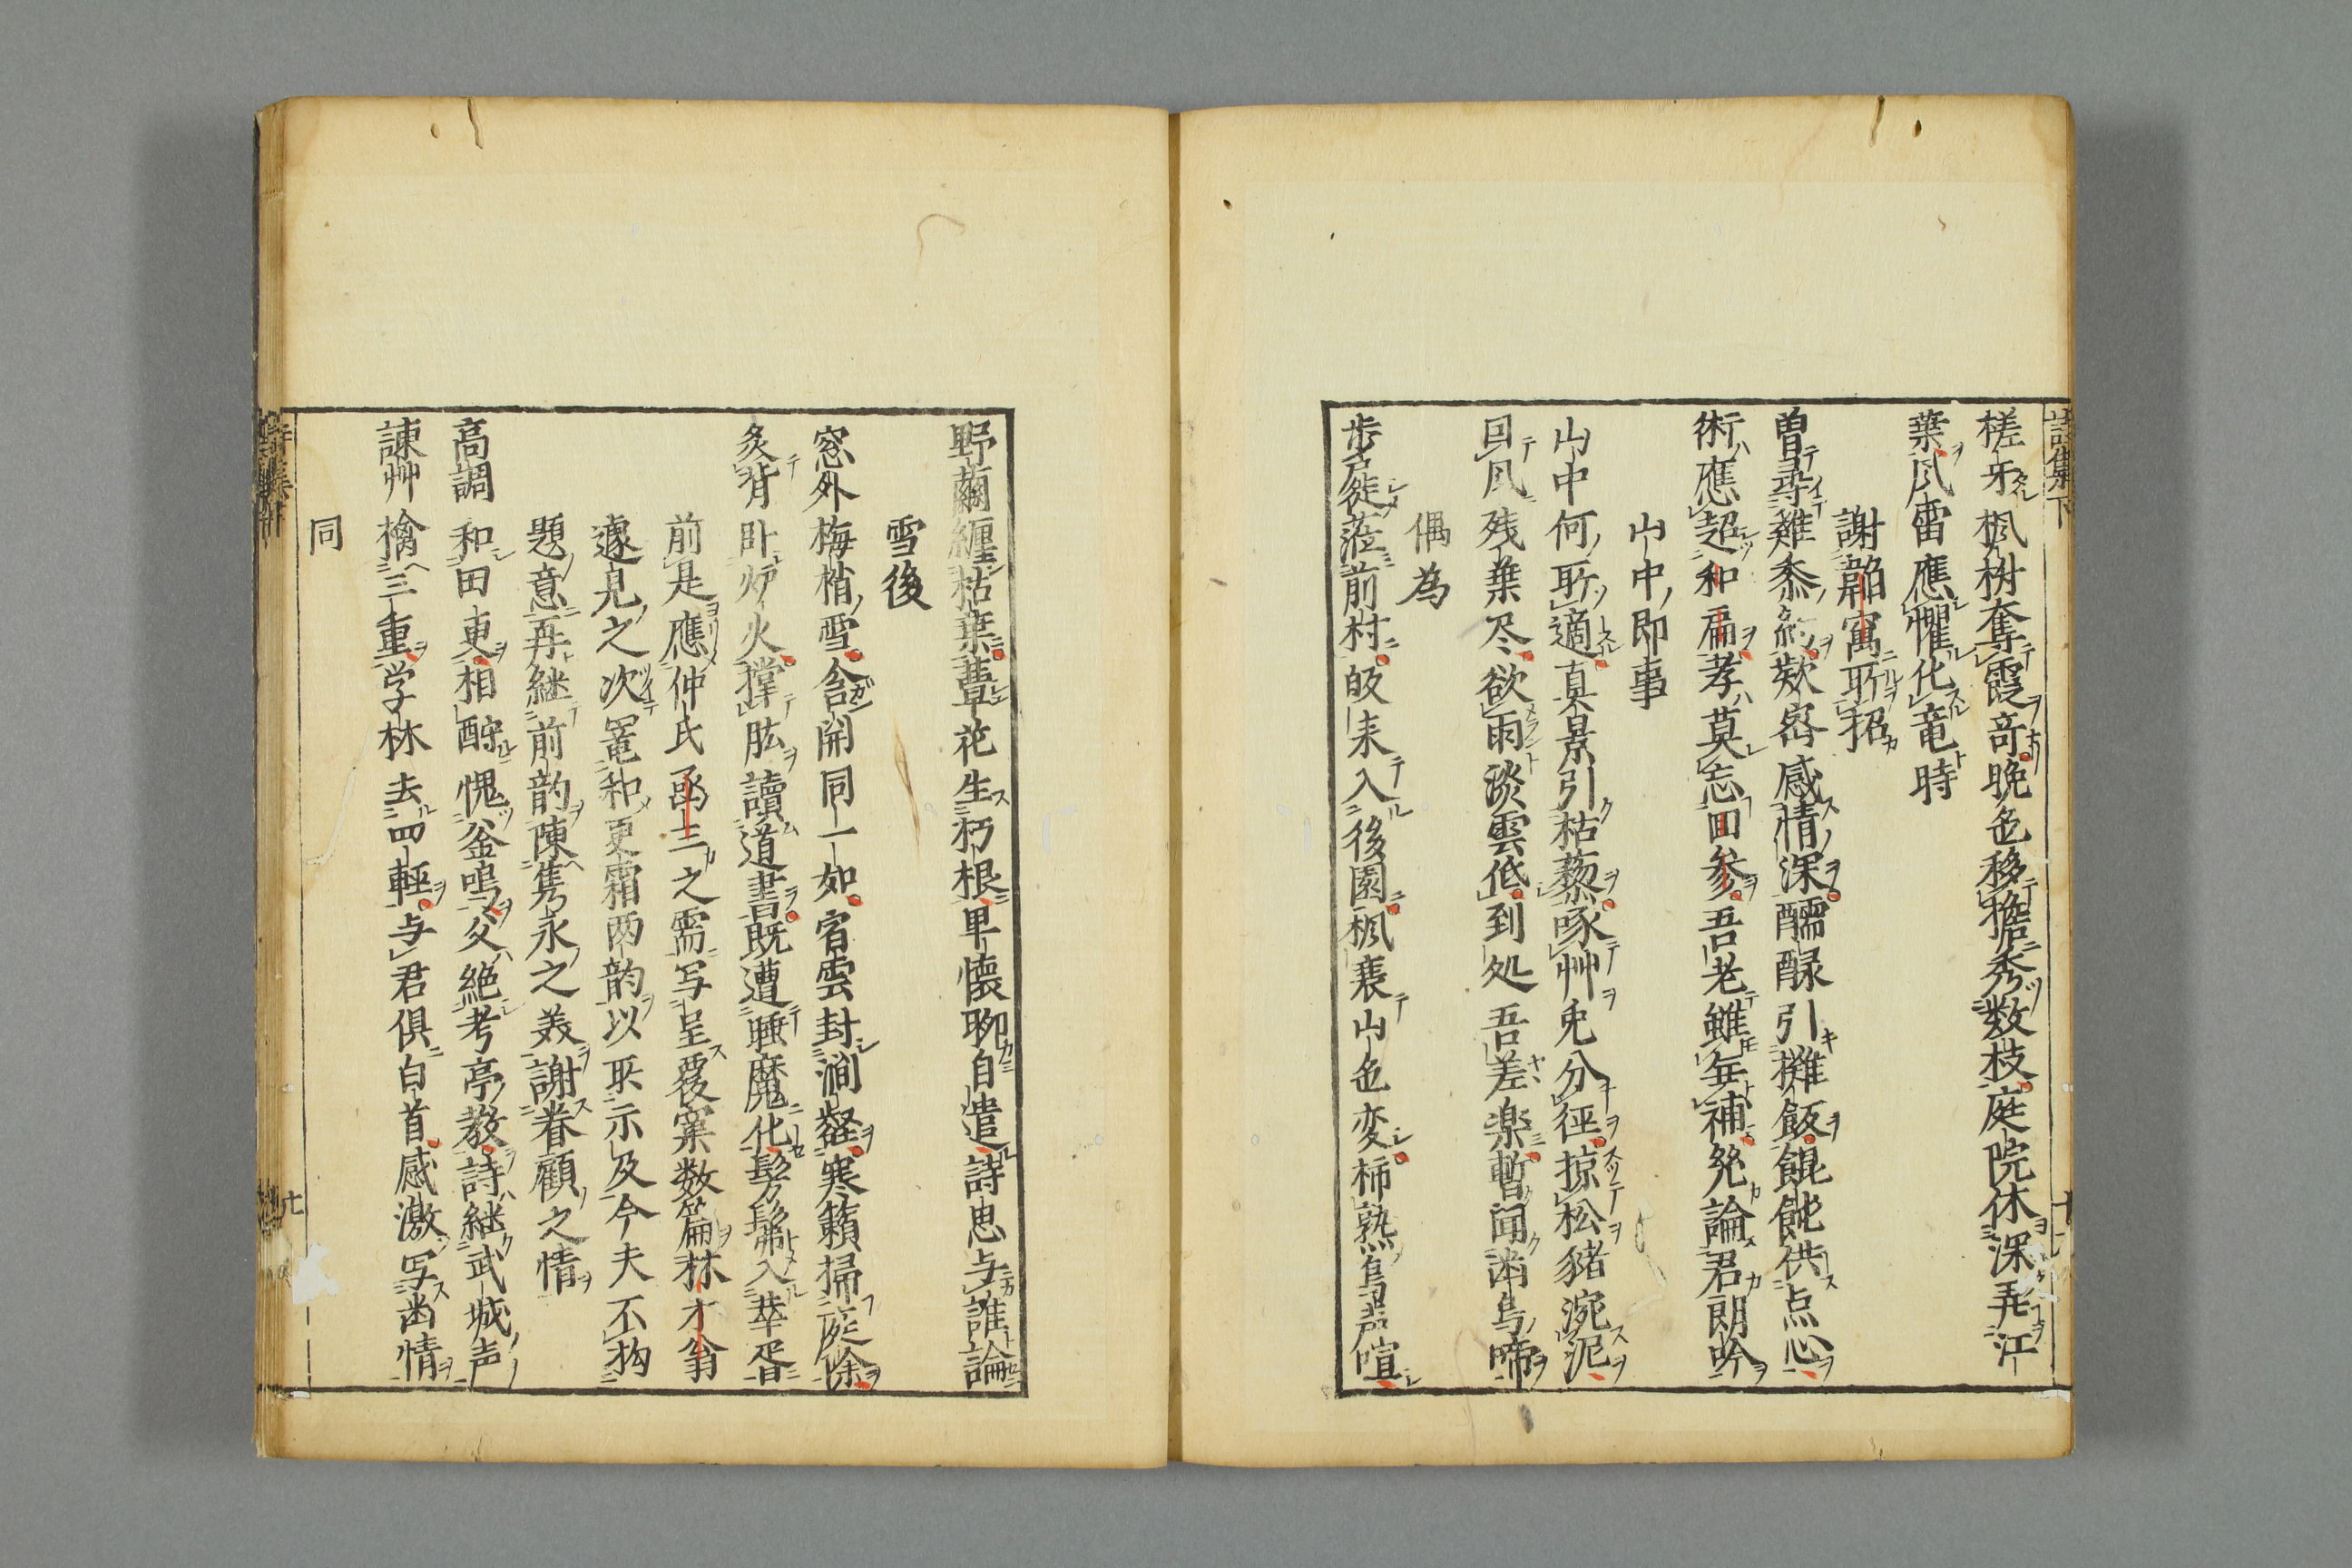 槎牙楓樹奪霞奇晩色移擔秀数枝庭院休深弄江
葉风雷應懼化竜時
謝韶寓所招
曽尋難黍約欵密感情深醹醁引攤飯餛飩供点心
術應超和扁孝莫忘回参吾老雖年補絶論君朗吟
山中即事
山中何所適真景引枯藜啄艸兎分徑掠松猪涴泥
回风残葉尽欲雨淡雲低到処吾差楽暫闻满鳥啼
偶為
歩屧徙蒞前村皈来入後園楓衰山色変柿熟鳥声喧
野蘭纏枯葉蕈花生朽根早懐聊自遣詩思与誰論
雪後
窓外梅梢雪含開同一如宿雲封澗壑寒籟掃庭除
炙背卧炉火撑肱讀道書既遭睡魔化髣髴入華胥
前是應仲氏函三之需写呈覆窠数篇林才翁
遽見之次罨和更霜两韵以取示及今夫不拘
題意再継前韵陳隽永之美謝眷顧之情
高調和田更相酹愧釡鳴父絶考亭教詩継武城声
諌艸檎三重学林去四軽与君俱白首感激写歯情
同